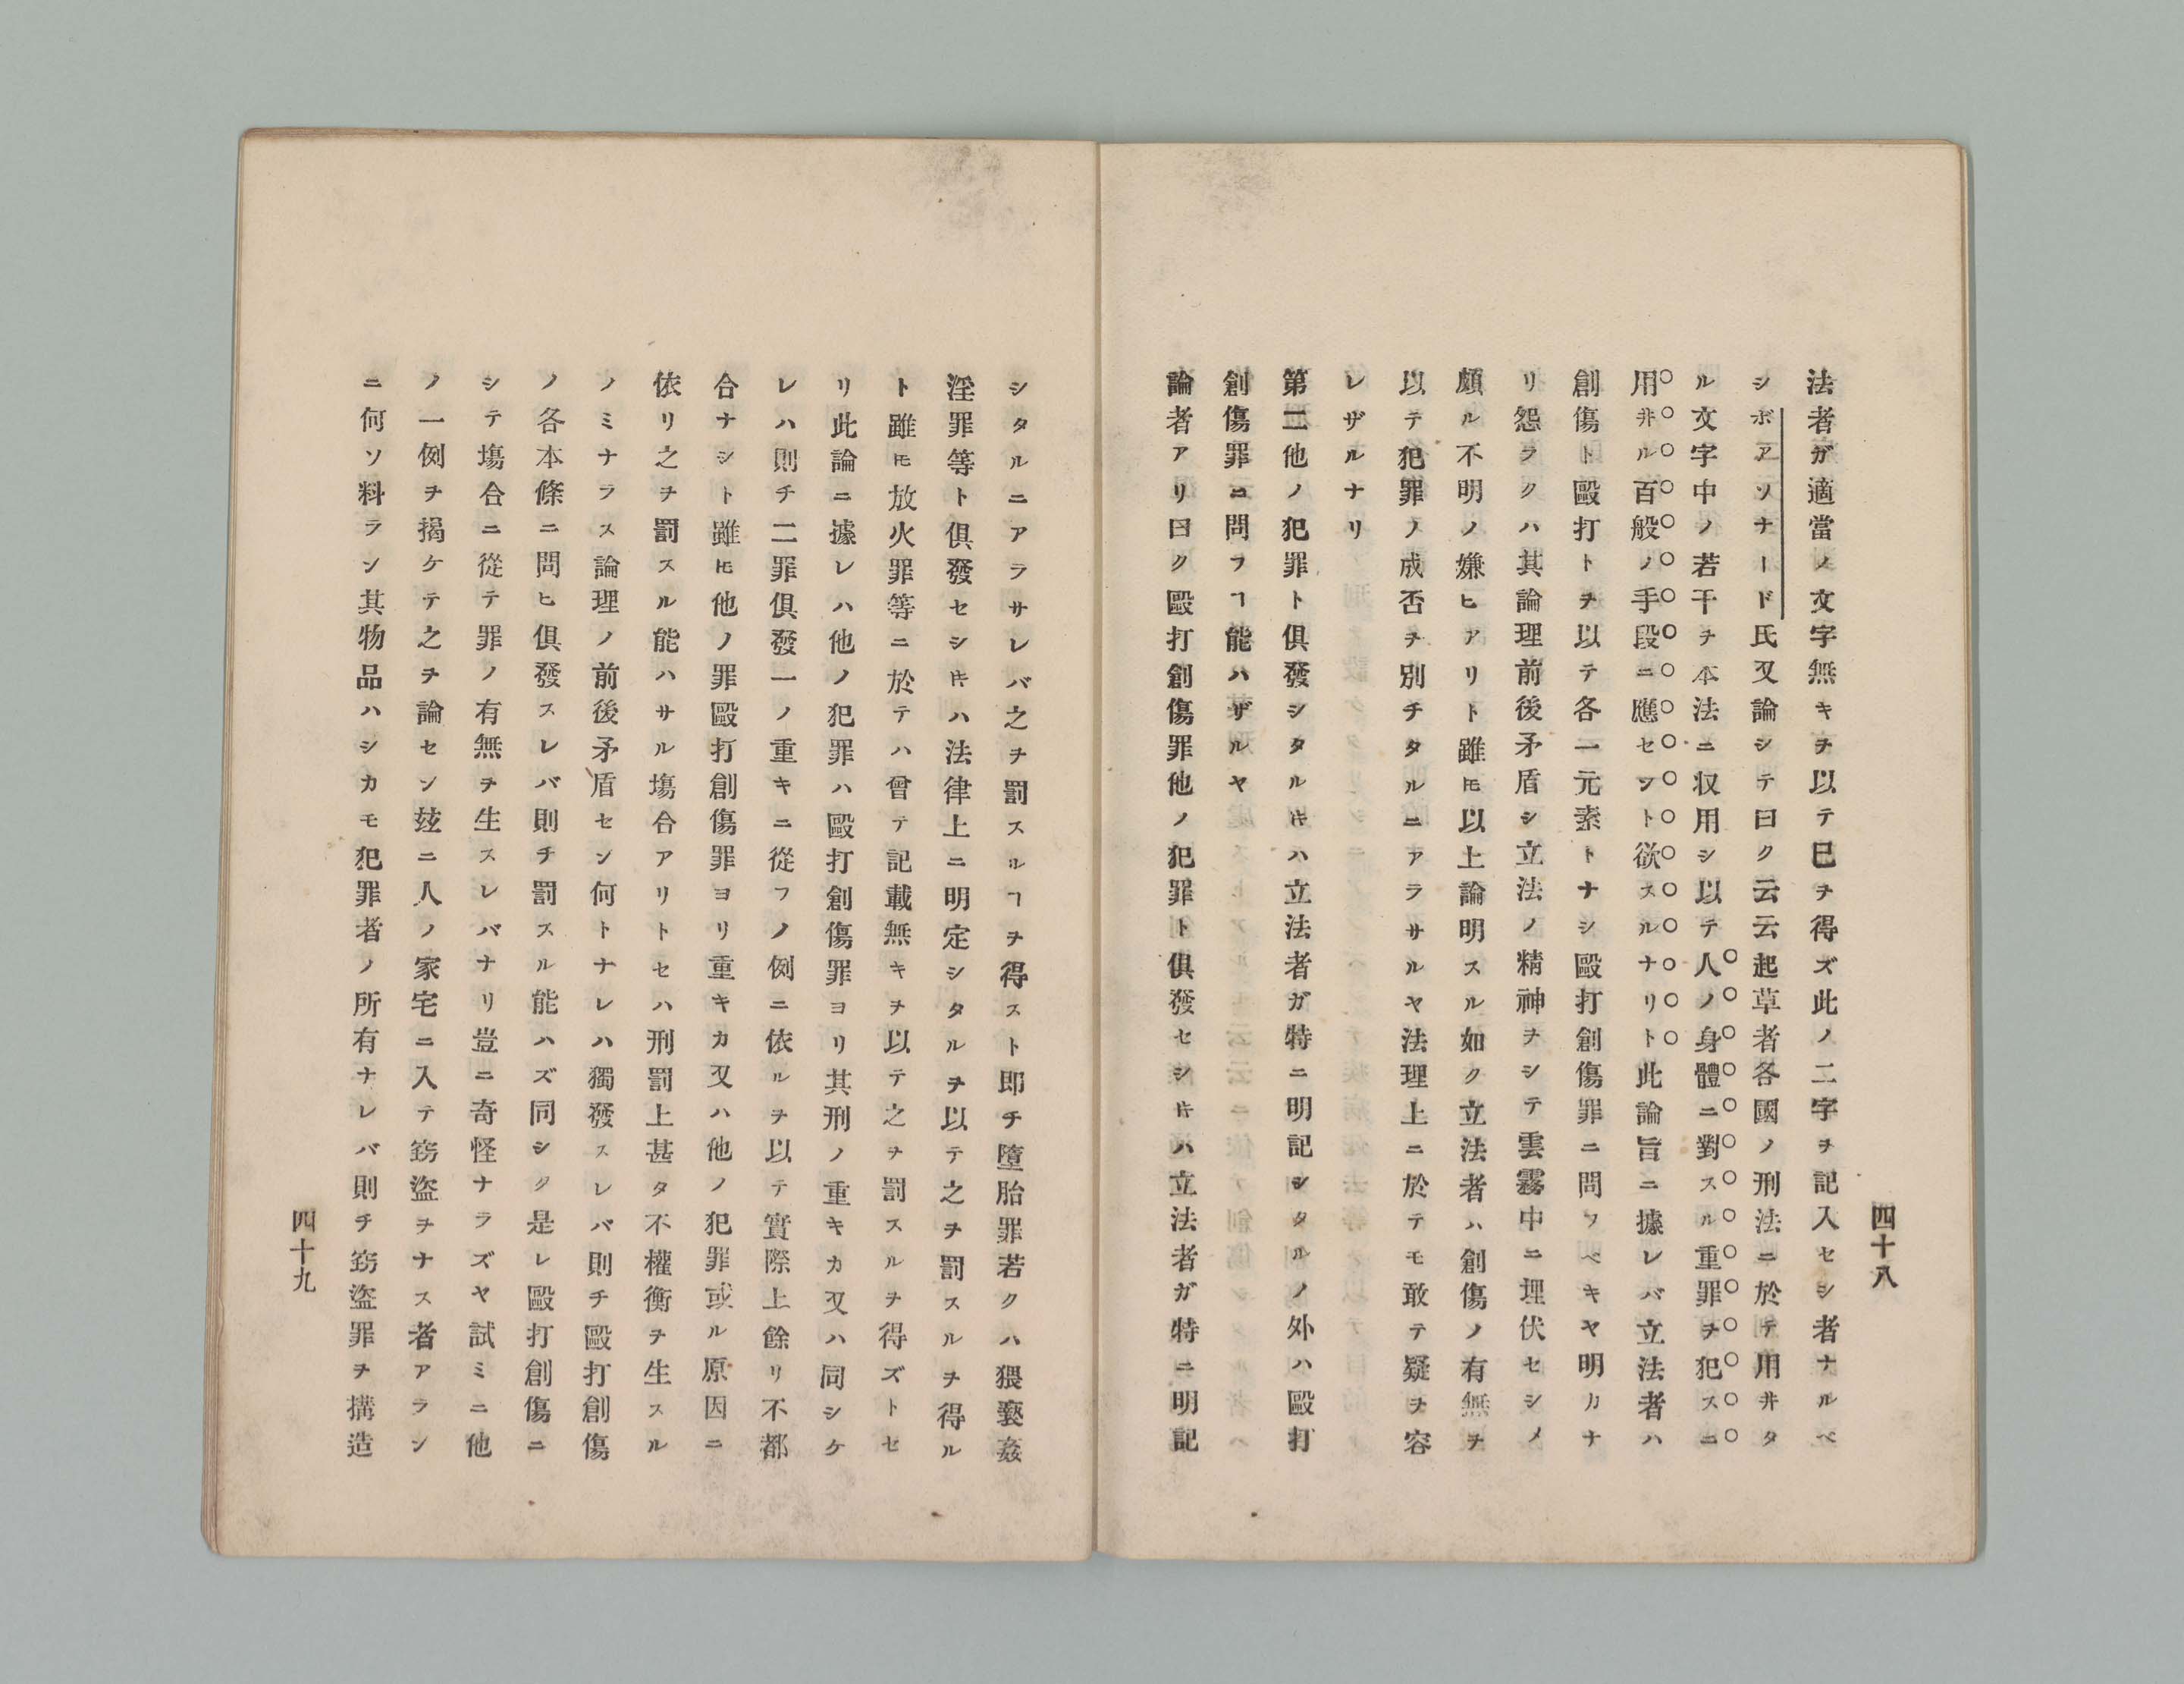 四十八
法者ガ適當ノ文字無キヲ以テ已ヲ得ズ此ノ二字ヲ記入セシ者ナルベ
シボアソナード氏又論シテ曰ク云云起草者各國ノ刑法ニ於テ用井タ
ル文字中ノ若干ヲ本法ニ収用シ以テ人ノ身體ニ對スル重罪ヲ犯スニ
用井ル百般ノ手段ニ應セント欲スルナリト此論旨ニ據レバ立法者ハ
創傷ト毆打トヲ以テ各一元素トナシ毆打創傷罪ニ問フベキヤ明カナ
リ怨ラクハ其論理前後矛盾シ立法ノ精神ヲシテ雲霧中ニ埋伏セシメ
頗ル不明ノ嫌ヒアリト雖𪜈以上論明スル如ク立法者ハ創傷ノ有無ヲ
以テ犯罪ノ成否ヲ別チタルニアラサルヤ法理上ニ於テモ敢テ疑ヲ容
レザルナリ
第二他ノ犯罪ト俱發シタル𪜈ハ立法者ガ特ニ明記シタルノ外ハ毆打
創傷罪ニ問フヿ能ハザルヤ
論者アリ曰ク毆打創傷罪他ノ犯罪ト俱發セシ𪜈ハ立法者ガ特ニ明記
シタルニアラサレバ之ヲ罰スルヿヲ得スト即チ墮胎罪若クハ猥褻姦
淫罪等ト俱發セシ𪜈ハ法律上ニ明定シタルヲ以テ之ヲ罰スルヲ得ル
ト雖𪜈放火罪等ニ於テハ曾テ記載無キヲ以テ之ヲ罰スルヲ得ズトセ
リ此論ニ據レハ他ノ犯罪ハ毆打創傷罪ヨリ其刑ノ重キカ又ハ同シケ
レハ則チ二罪俱發一ノ重キニ從フノ例ニ依ルヲ以テ實際上餘リ不都
合ナシト雖𪜈他ノ罪毆打創傷罪ヨリ重キカ又ハ他ノ犯罪或ル原因ニ
依リ之ヲ罰スル能ハサル塲合アリトセハ刑罰上甚タ不權衡ヲ生スル
ノミナラス論理ノ前後矛盾セン何トナレハ獨發スレバ則チ毆打創傷
ノ各本條ニ問ヒ俱發スレバ則チ罰スル能ハズ同シク是レ毆打創傷ニ
シテ塲合ニ從テ罪ノ有無ヲ生スレバナリ豈ニ奇怪ナラズヤ試ミニ他
ノ一例ヲ揭ケテ之ヲ論セン玆ニ人ノ家宅ニ入テ竊盜ヲナス者アラン
ニ何ソ料ラン其物品ハシカモ犯罪者ノ所有ナレバ則チ竊盜罪ヲ搆造
四十九